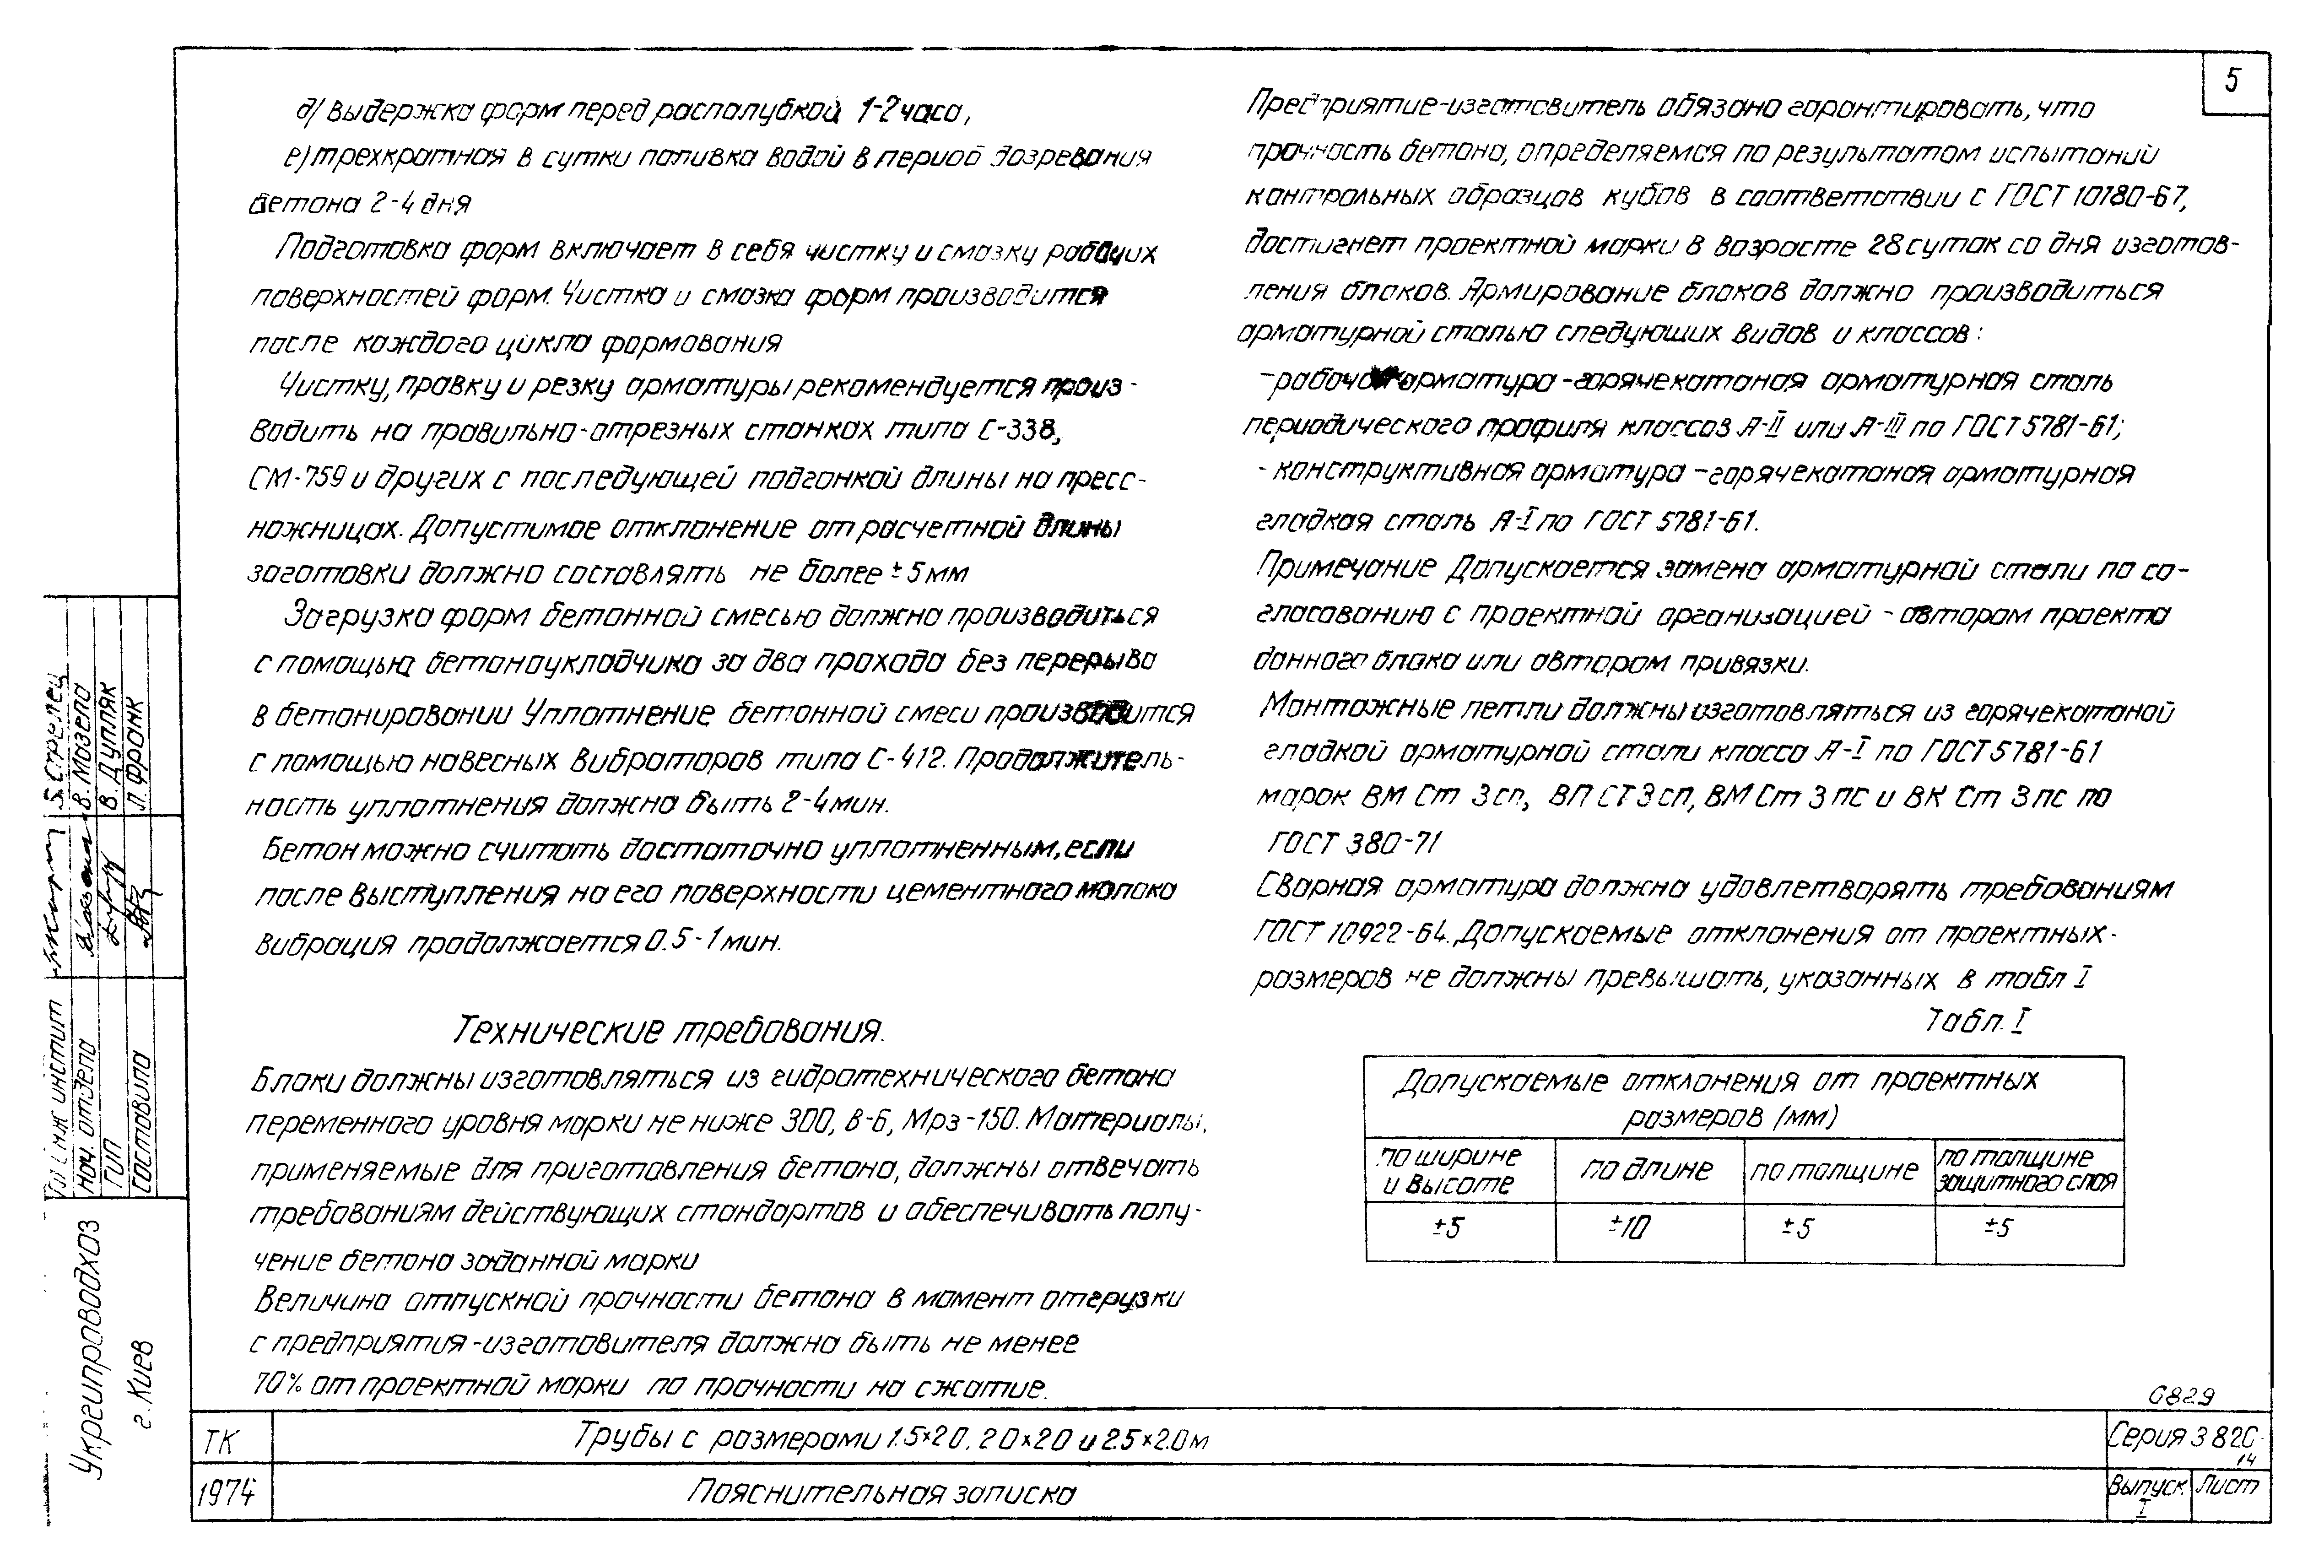 5
д) выдержка форм перед распалубкой 1-2 часа,
е) трехкратная в сутки поливка водой в период дозревания
бетона 2-4 дня
Подготовка форм включает в себя чистку и смазку рабочих
поверхностей форм. Чистка и смазка форм производится
после каждого цикла формования
Чистку, правку и резку арматуры рекомендуется произ-
водить на правильно-отрезных станках типа С-338,
СМ-759 и других с последующей подгонкой длины на пресс-
ножницах. Допустимое отклонение от расчетной длины
заготовки должно составлять не более ±5 мм
Загрузка форм бетонной смесью должна производиться
с помощью бетоноукладчика за два прохода без перерыва
в бетонировании Уплотнение бетонной смеси производится
с помощью навесных вибраторов типа С-412. Продолжитель-
ность уплотнения должна быть 2-4 мин.
Бетон можно считать достаточно уплотненным, если
после выступления на его поверхности цементного молока
вибрация продолжается 0.5-1 мин.
Технические требования.
Блоки должны изготовляться из гидротехнического бетона
переменного уровня марки не ниже 300, В-6, Мрз-150. Материалы,
применяемые для приготовления бетона, должны отвечать
требованиям действующих стандартов и обеспечивать полу-
чение бетона заданной марки
Величина отпускной прочности бетона в момент отгрузки
с предприятия-изготовителя должна быть не менее
70% от проектной марки по прочности на сжатие.
Предприятие-изготовитель обязано гарантировать, что
прочность бетона, определяемся по результатом испытаний
контрольных образцов кубов в соответствии с ГОСТ 10180-67,
достигнет проектной марки в возрасте 28 суток со дня изготов-
ления блоков. Армирование блоков должно производиться
арматурной сталью следующих видов и классов:
-рабочая арматура-горячекатаная арматурная сталь
периодического профиля классов А-II или А-III по ГОСТ 5781-61;
- конструктивная арматура - горячекатаная арматурная
гладкая сталь А-I по ГОСТ 5781-61.
Примечание Допускается замена арматурной стали по со-
гласованию с проектной организацией - автором проекта
данного блока или автором привязки.
Монтажные петли должны изготовляться из горячекатаной
гладкой арматурной стали класса А-I по ГОСТ 5781-61
марок ВМ Ст 3 сп, ВП СТ 3 сп, ВМ Ст 3 пс и ВК Ст 3 пс по
ГОСТ 380-71
Сварная арматура должна удовлетворять требованиям
ГОСТ 10922-64. Допускаемые отклонения от проектных-
размеров не должны превышать, указанных в табл I
Табл. I
Допускаемые отклонения от проектных
размеров (мм)
по ширине и высоте | по длине | по толщине | по толщине защитного слоя
±5 | ±10 | ±5 | ±5
6829
ТК
Трубы с размерами 1.5×2 0, 2 0×2 0 и 2.5×2.0 м
Серия 3 820
14
1974
Пояснительная записка
Выпуск I
Лист
инж институт
Стрелец
Нач. отдела
В. Мазепа
ГИП
В. Дупляк
Составила
Л. Франк
Укргипроводхоз
г. Киев